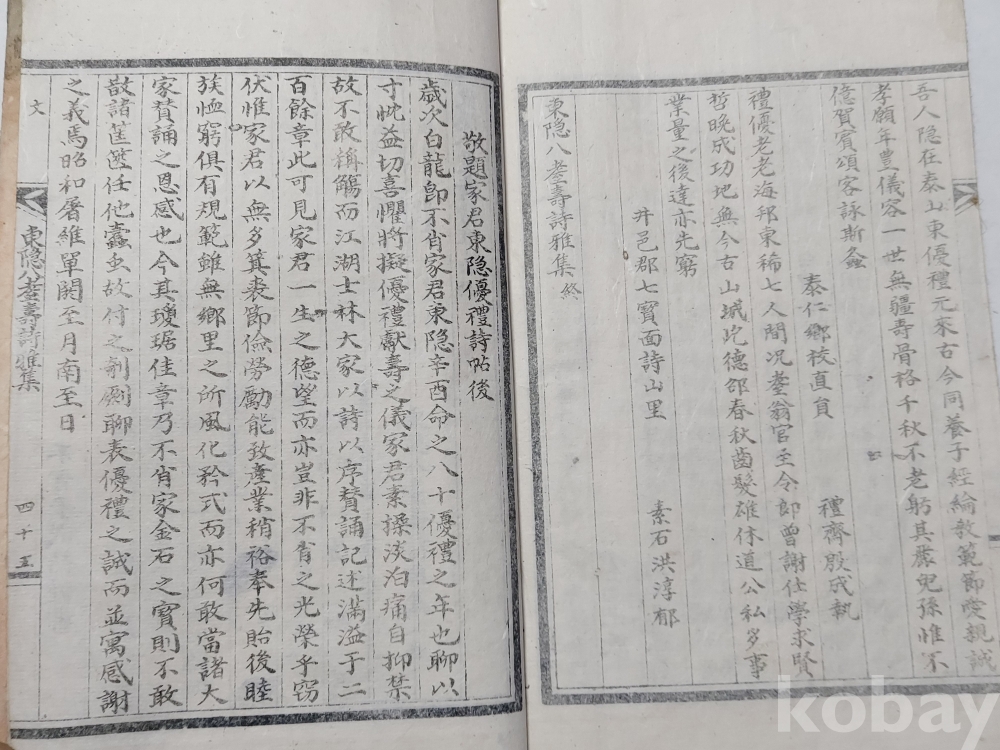 吾人隐在泰山東優禮元來古今同養子經綸教範節受親誠
孝願年豊儀容一世無疆壽骨格千秋不老躬其慶兒孫惟不
億賀賓頌客詠斯螽
泰仁鄉校直員　禮齊殷成執
禮優老老海邦東稀七人間况耋翁官至令郎曾謝仕學求賢
哲晩成功地無今古山城屹德邵春秋齒髮雄休道公私多事
業量之後達亦先窮
井邑郡七寶面詩山里　素石洪淳郁
東隐八耋壽詩雅集終
敬題家君東隐優禮詩帖後
歲次白龍卽不肖家君東隐辛酉命之八十優禮之年也聊以
寸忱益切喜懼將擬優禮獻壽之儀家君素操淡泊痛自抑禁
故不敢稱觴而江湖士林大家以詩以序賛誦記述滿溢于二
百餘章此可見家君一生之德望而亦豈非不肖之光榮乎窃
伏惟家君以無多箕裘節儉勞勵能致產業稍裕奉先貽後睦
族恤窮俱有規範雖無鄉里之所風化矜式而亦何敢當諸大
家賛誦之恩感也今其瓊琚佳章乃不肖家金石之寶則不敢
散諸筐篋任他蠹虫故付之剞劂聊表優禮之誠而並寓感謝
之義焉昭和屠維單閼至月南至日
文　東隐八耋壽詩雅集　四十五
kobay